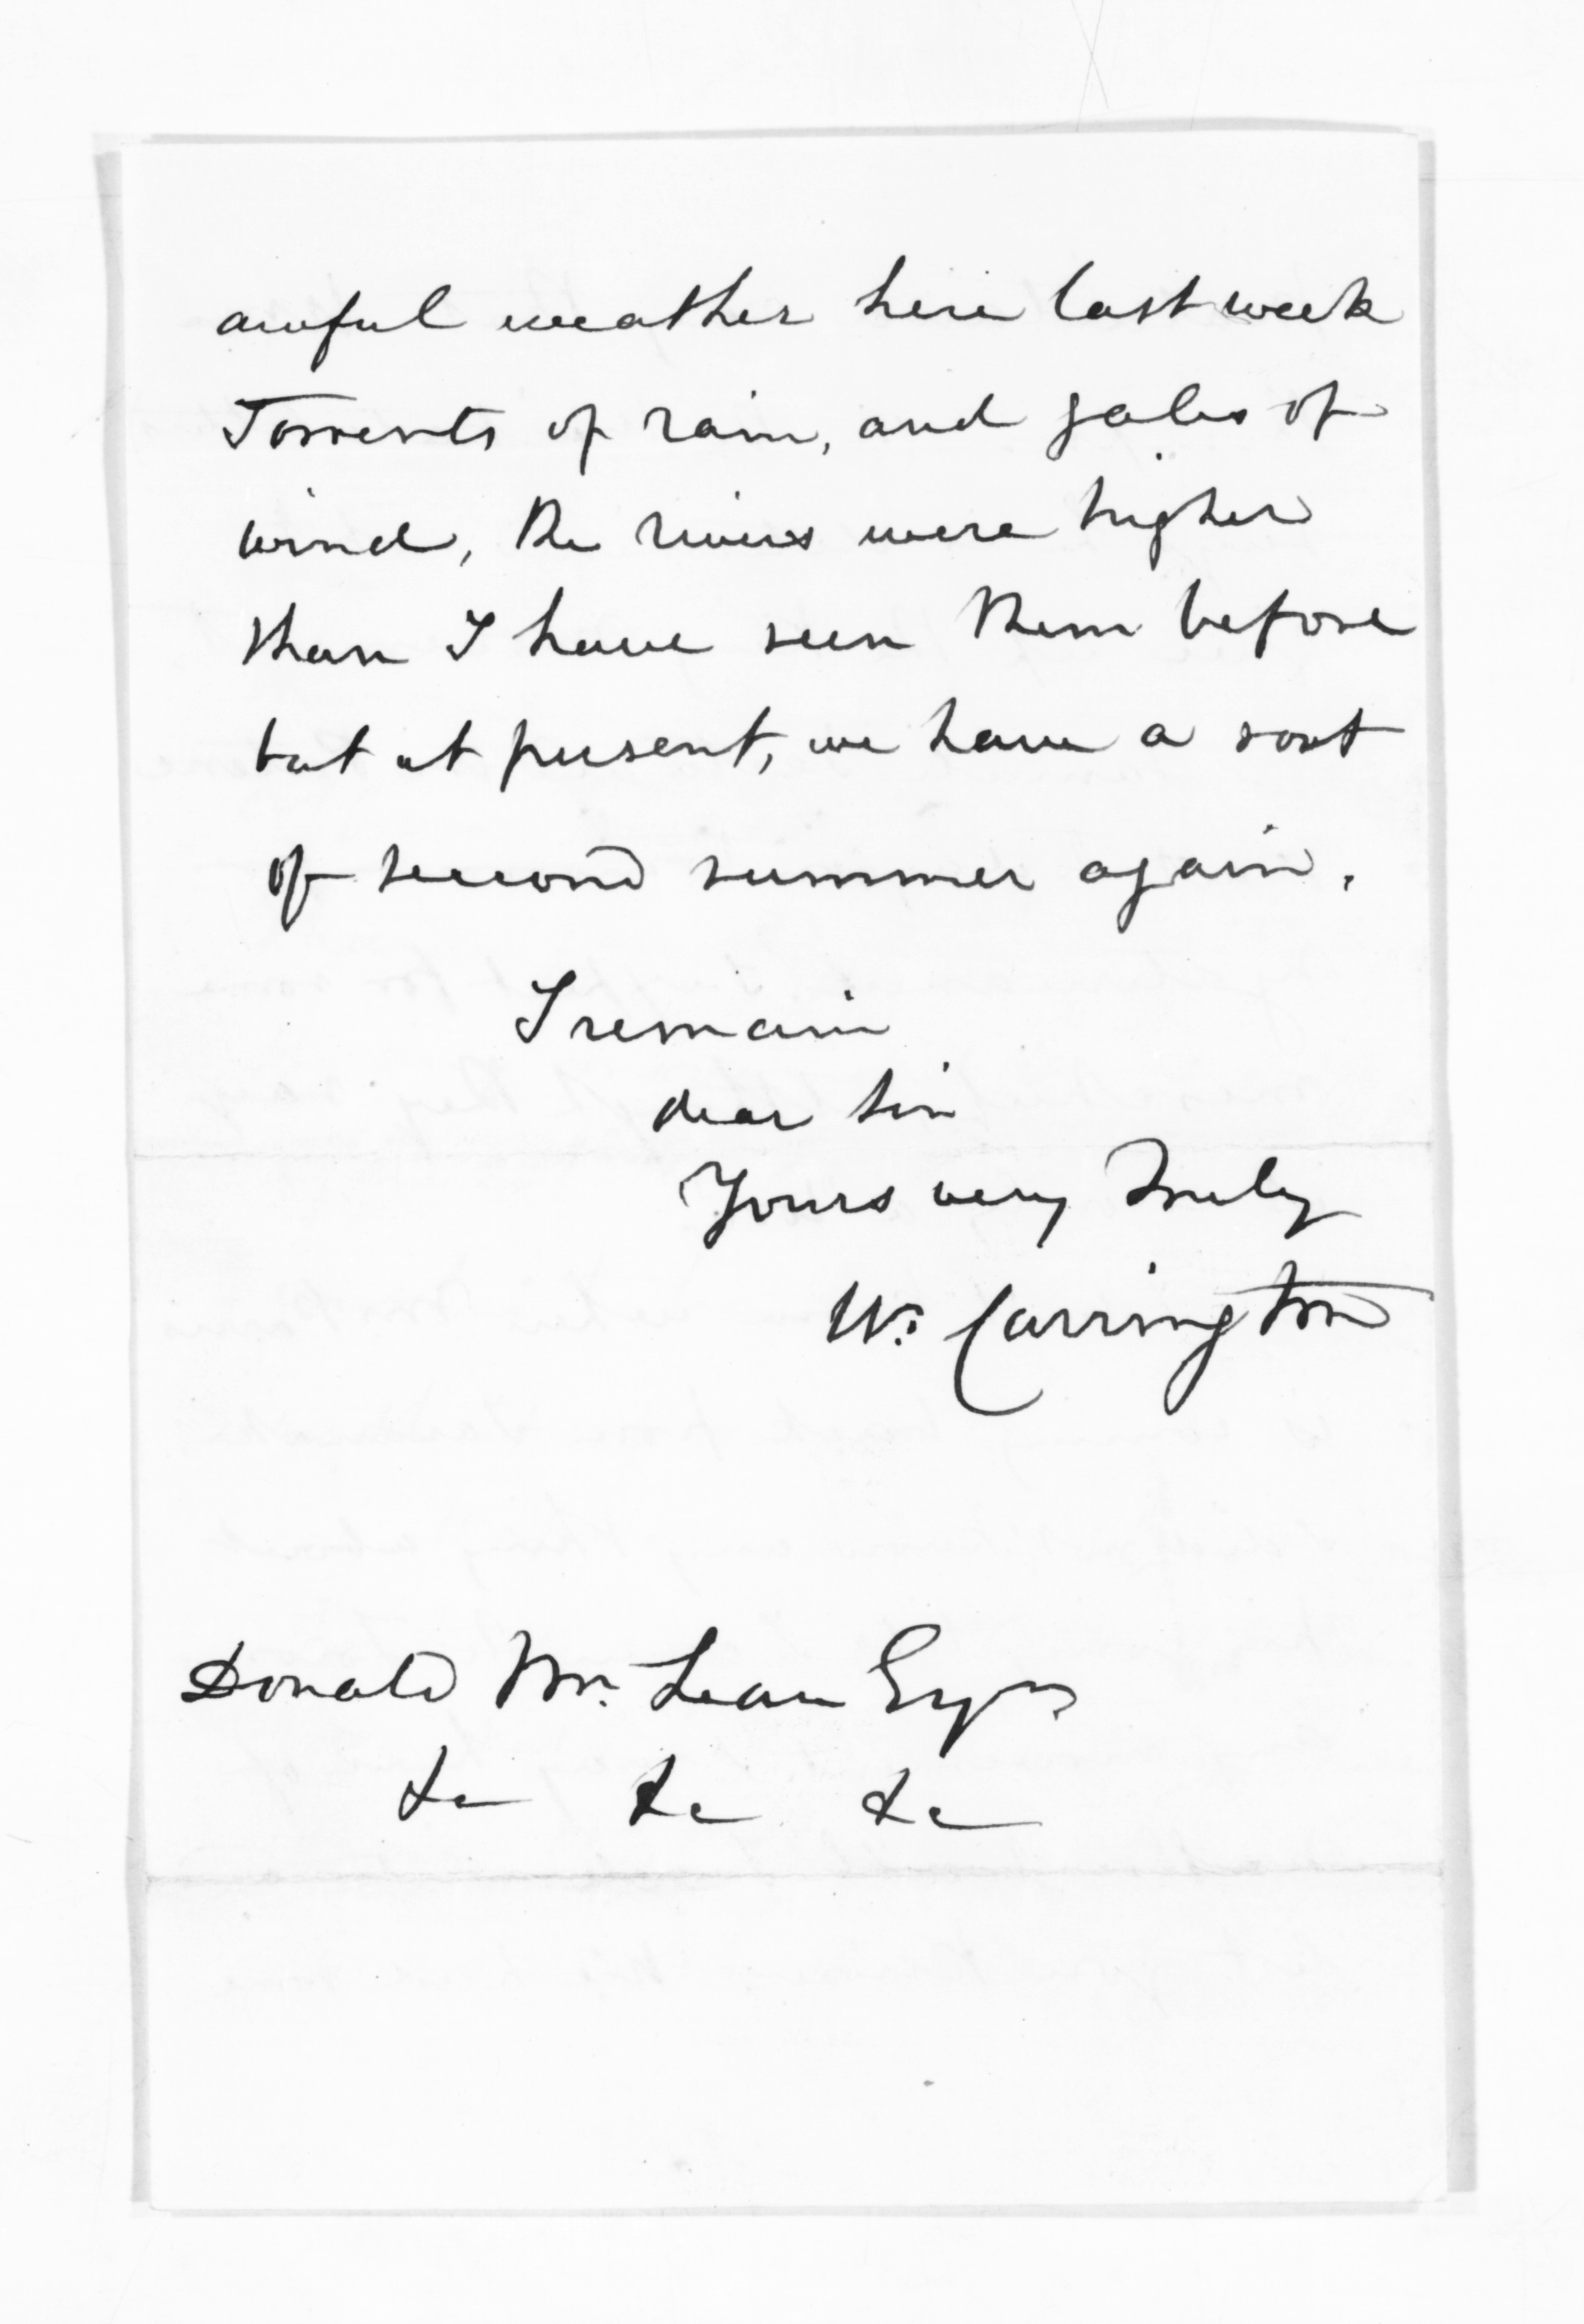 awful weather here last week
Torrents of rain, and gales of
wind, the rivers were higher
than I have seen them before
but at present, we have a sort
of second summer again.
I remain
dear Sir
Yours very Truly
Wm. Carrington
Donald Mc. Lean Esqre.
&c &c &c